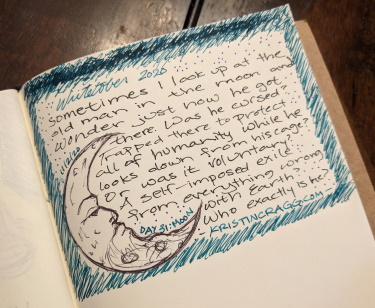 Writober 2020
Sometimes I look up at the
old man in the moon and
wonder just how he got
there. Was he cursed?
Trapped there to protect
all of humanity while he
looks down from his cage?
Or was it voluntary?
A self-imposed exile
from everything wrong
with Earth.
Who exactly is he?
DAY 31: MOON
KRISTINCRAGG.COM